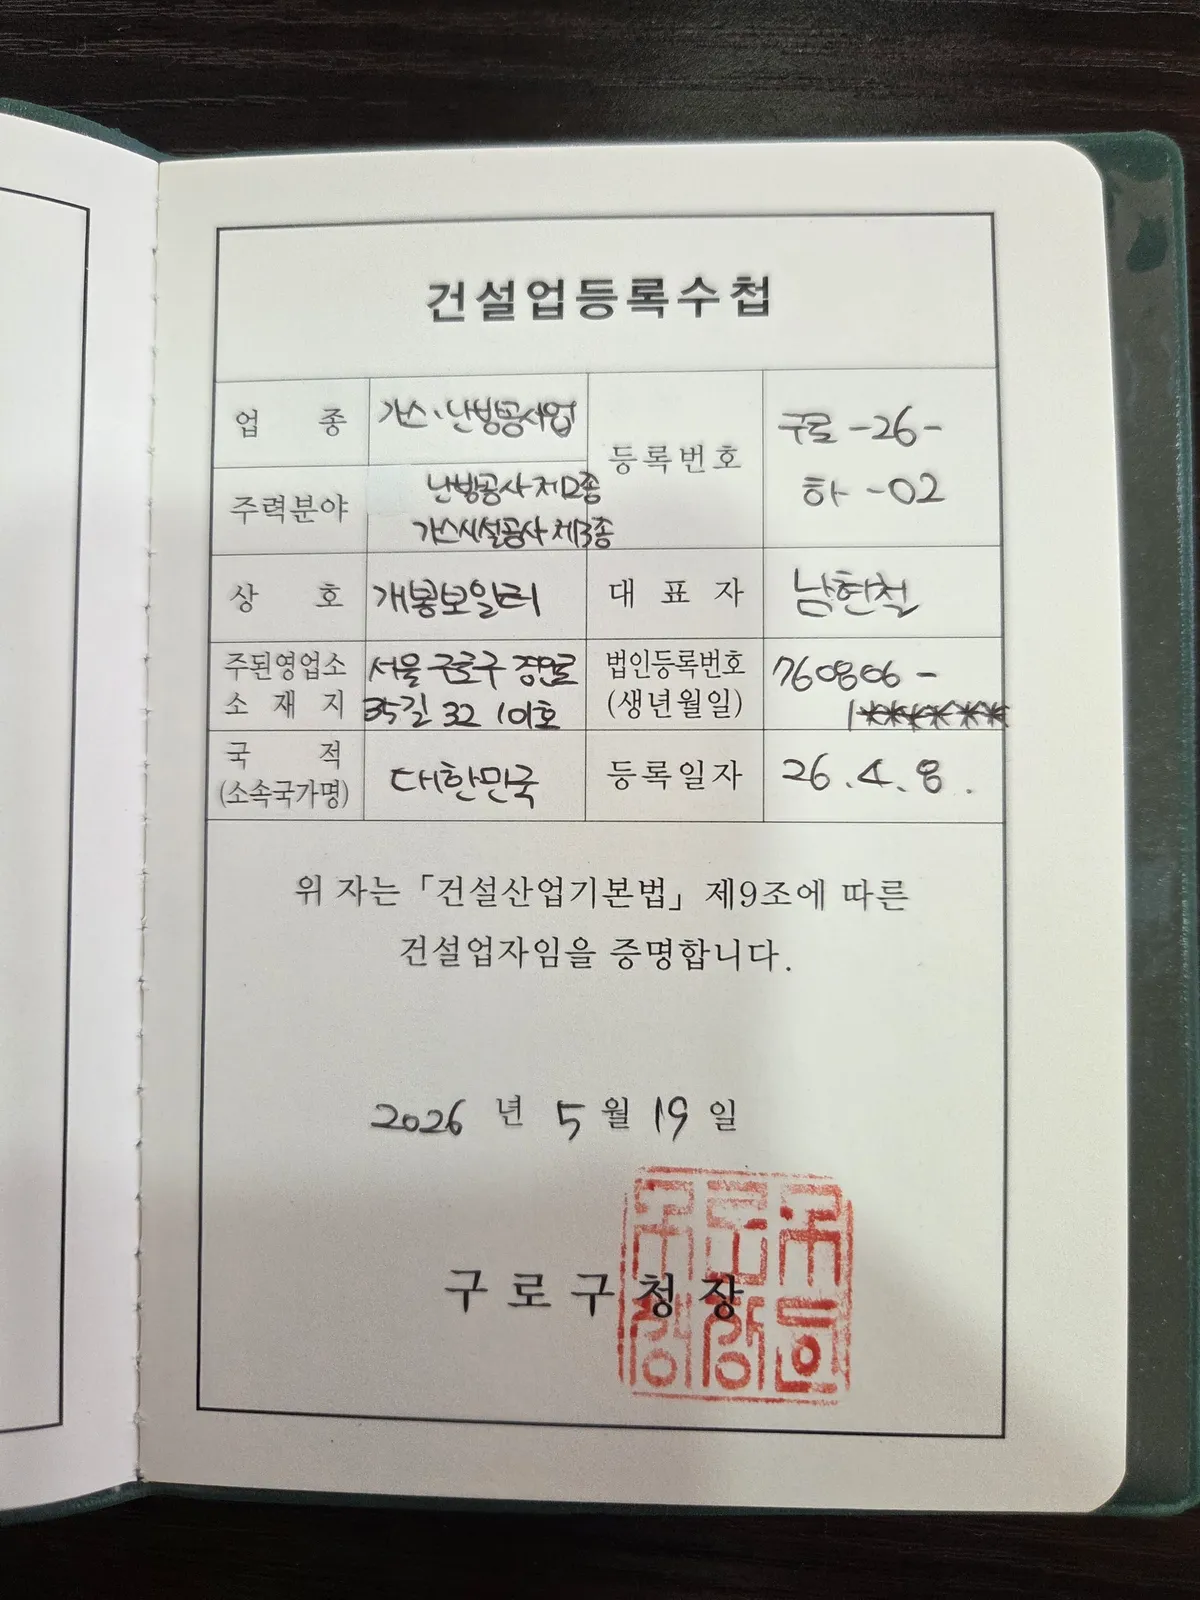 건설업등록수첩
업 종 가스·난방공사업
주력분야 난방공사 제2종
가스시설공사 제3종
등록번호 구로-26-
하-02
상 호 개봉보일러
대 표 자 남현철
주된영업소 서울 구로구 경인로
소 재 지 35길 32 101호
법인등록번호 760806-
(생년월일) 1******
국 적 대한민국
(소속국가명)
등록일자 26.4.8.
위 자는「건설산업기본법」제9조에 따른
건설업자임을 증명합니다.
2026 년 5 월 19 일
구로구청장